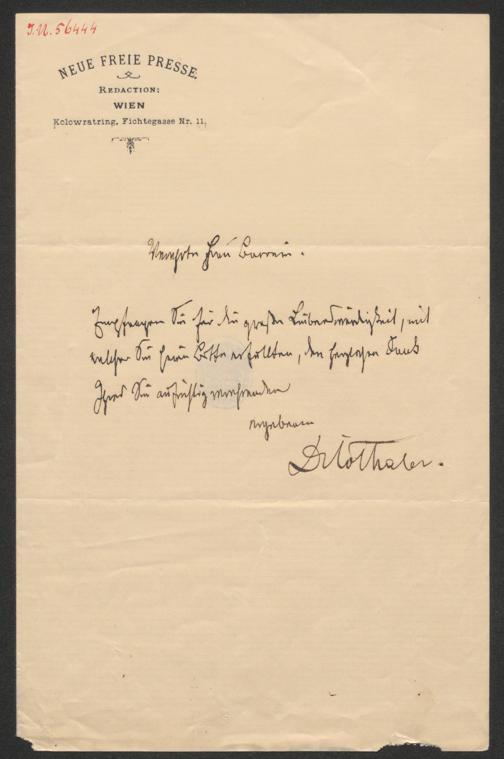 I.N. 56444
NEUE FREIE PRESSE.
REDACTION:
WIEN
Kolowratring, Fichtegasse Nr. 11.
Verehrte Frau Baronin.
Empfangen Sie für die große Liebenswürdigkeit, mit
welcher Sie meine Bitte erfüllten, den herzlichen Dank
Ihres Sie aufrichtig verehrenden
ergebenen